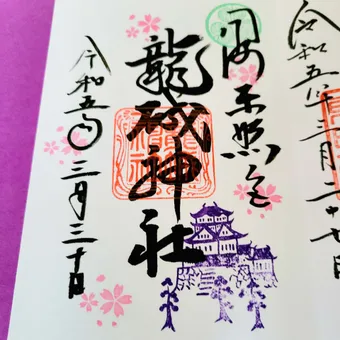 令和五年三月二十七日
岡崎東照宮
龍城神社
令和五年三月三十日